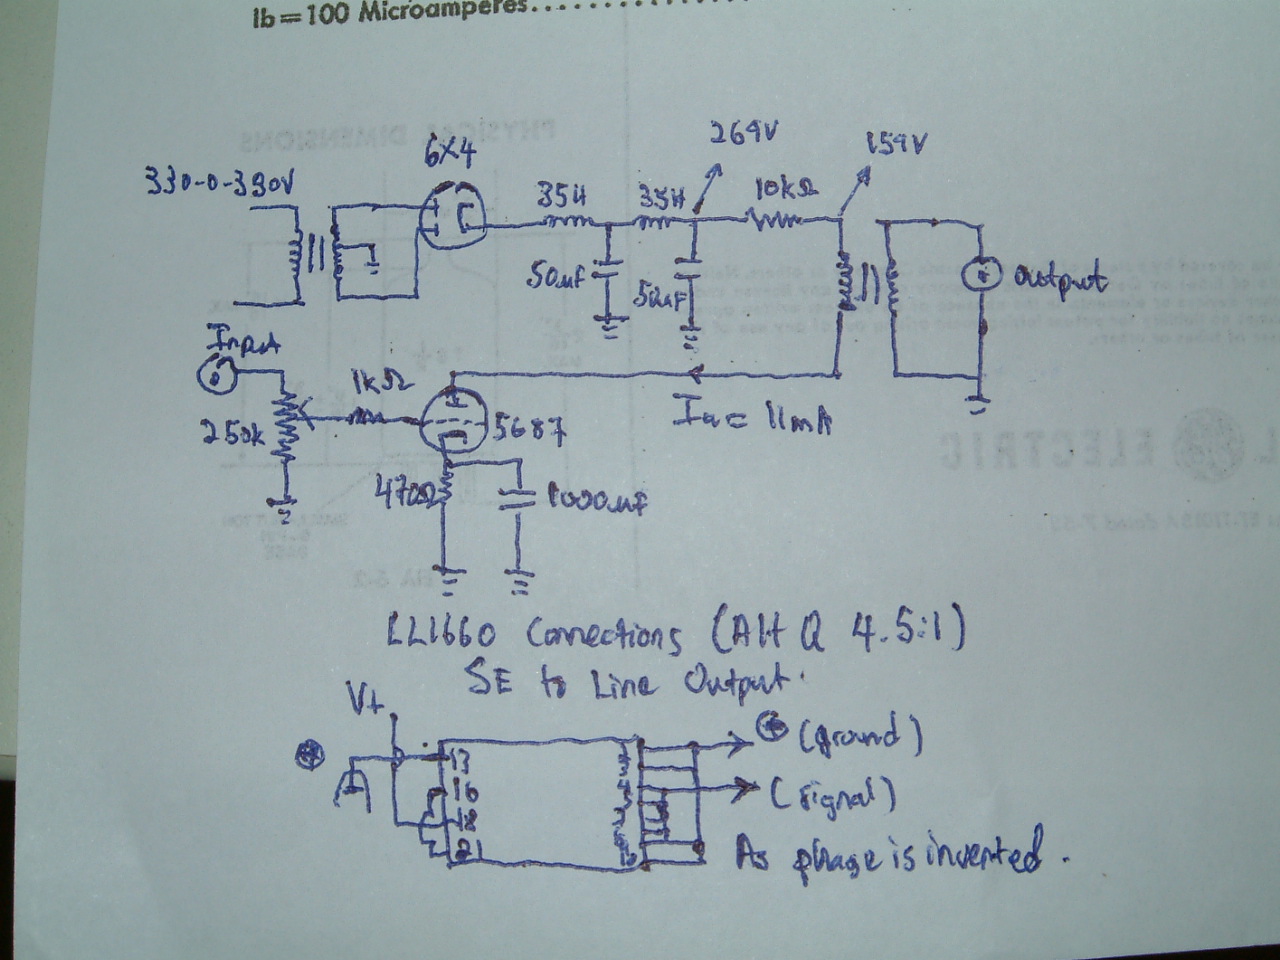 Ib=100 Microamperes
269V
159V
6X4
330-0-330V
35H
35H
10kΩ
50uF
50uF
output
Input
1kΩ
250k
5687
Ia = 11mA
470Ω
1000uF
LL1660 Connections (Alt Q 4.5:1)
SE to Line Output.
V+
(ground)
13
16
18
21
(signal)
As phase is inverted.
PHYSICAL DIMENSIONS
ELECTRIC